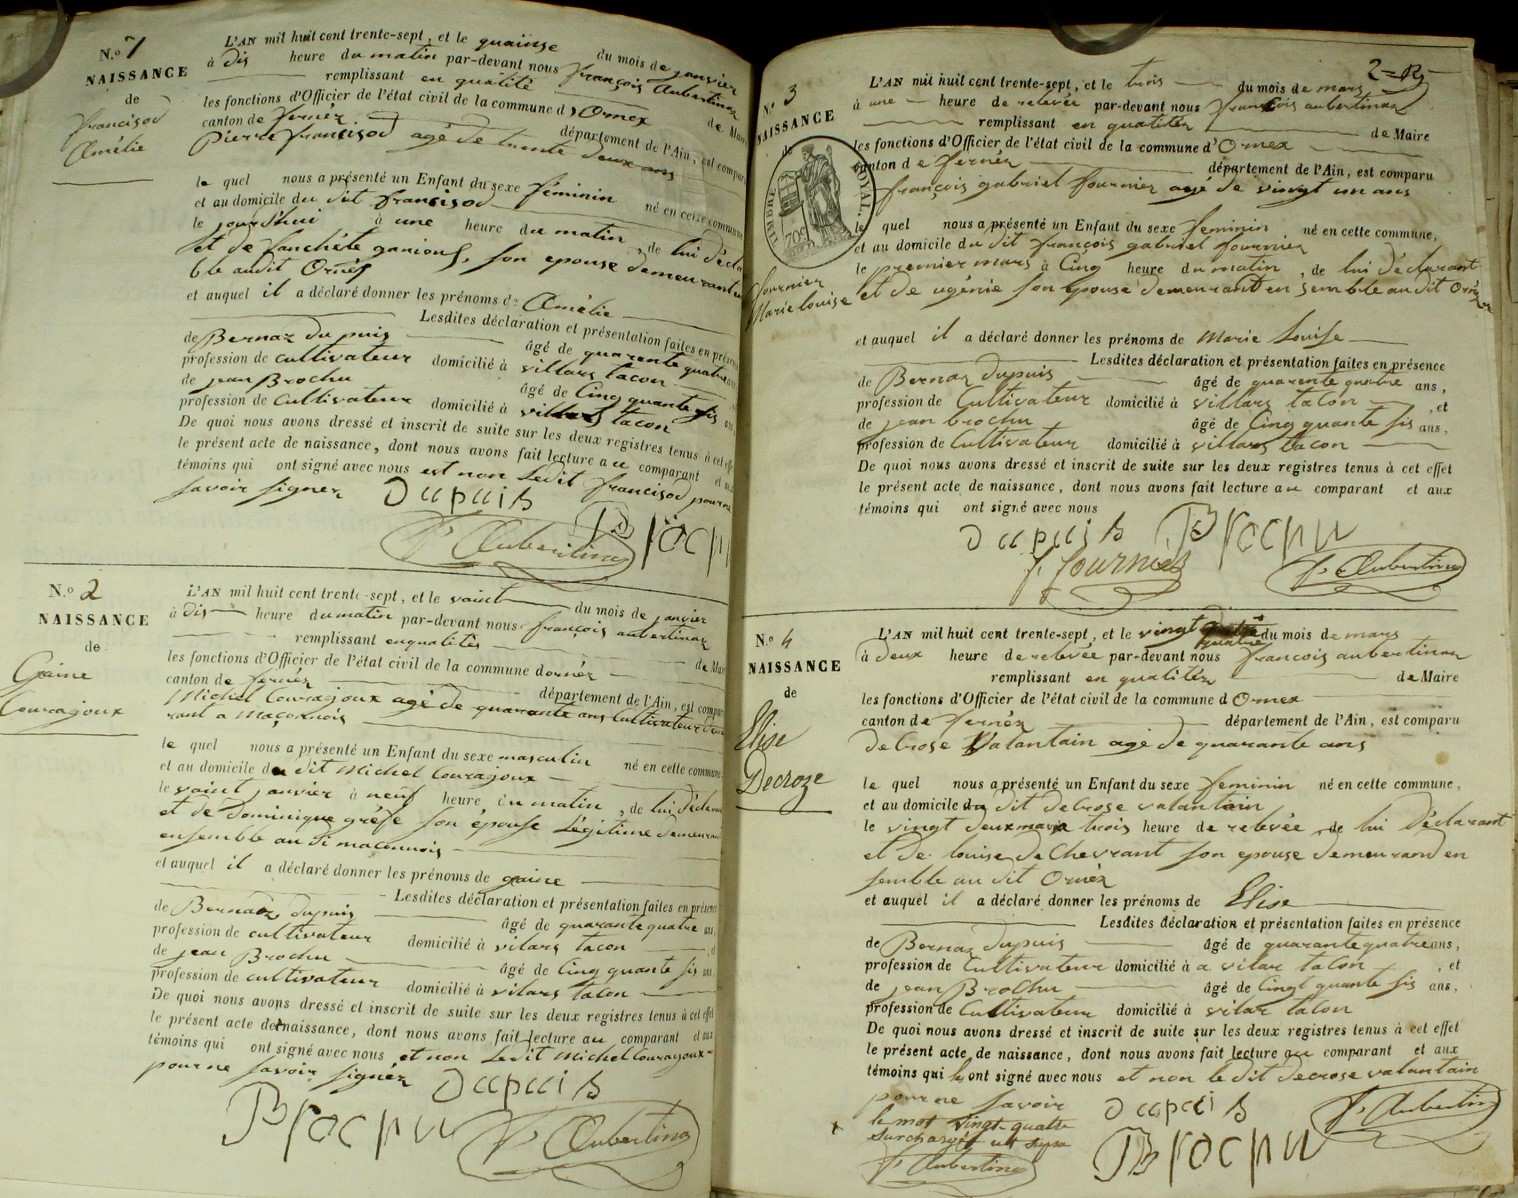 N.o 1
NAISSANCE
de
francisod
Amélie
L'AN mil huit cent trente-sept, et le quainse du mois de janvier
à dis heure du matin par-devant nous françois aubertinaz
remplissant en qualité de Maire
les fonctions d'Officier de l'état civil de la commune d'Ornex
canton de fernéx département de l'Ain, est comparu
Pierre francisod agé de trente deux ans
le quel nous a présenté un Enfant du sexe féminin né en cette commune
et au domicile du dit francisod
le jourd'hui à une heure du matin, de lui décla
et de fanchéte son epouse demeurant en
ble audit Ornéx
et auquel il a déclaré donner les prénoms de Amélie
Lesdites déclaration et présentation faites en présence
de Bernaz dupuis âgé de quarente quatre ans
profession de cultivateur domicilié à villars tacon
de jean Brochu âgé de Cinq quante sis ans
profession de cultivateur domicilié à villars tacon
De quoi nous avons dressé et inscrit de suite sur les deux registres tenus à cet effet
le présent acte de naissance, dont nous avons fait lecture au comparant et aux
témoins qui ont signé avec nous et non Ledit francisod pour ne
savoir signer Dupuis
F. Aubertina Brochu
N.o 2
NAISSANCE
de
Gaine
Couragoux
L'AN mil huit cent trente-sept, et le vainct du mois de janvier
à dis heure du matin par-devant nous françois aubertinaz
remplissant en qualités de Maire
les fonctions d'Officier de l'état civil de la commune dornéx
canton de fernéx département de l'Ain, est comparu
Michel Couragoux agé de quarante ans Cultivateur
rant a Maconnois
le quel nous a présenté un Enfant du sexe masculin né en cette commune
et au domicile du dit Michel Couragoux
le vainct janvier à neuf heure du matin, de lui déclarant
et de dominique gréfe son épouse Légitime demeurant
ensemble au di maconnois
et auquel il a déclaré donner les prénoms de gaine
Lesdites déclaration et présentation faites en présence
de Bernaz, dupuis âgé de quarante quatre ans
profession de cultivateur domicilié à vilars tacon
de jean Brochu âgé de Cinq quante sis ans
profession de cultivateur domicilié à vilars tacon
De quoi nous avons dressé et inscrit de suite sur les deux registres tenus à cet effet
le présent acte de naissance, dont nous avons fait lecture au comparant et aux
témoins qui ont signé avec nous et non Ledit Michel Couragoux
pour ne savoir signér Dupuis
Brochu F. Aubertina
2
N.o 3
NAISSANCE
de
TIMBRE ROYAL
70c
fournier
Marie Louise
L'AN mil huit cent trente-sept, et le trois du mois de mars
à une heure de relevée par-devant nous françois aubertinaz
remplissant en qualitéz de Maire
les fonctions d'Officier de l'état civil de la commune d'Ornex
canton de fernéx département de l'Ain, est comparu
françois gabriel fournier agé de vingt un ans
le quel nous a présenté un Enfant du sexe feminin né en cette commune,
et au domicile du dit françois gabriel fournier
le premier mars à Cinq heure du matin, de lui déclarant
et de ugénie son epouse demeurant en semble au dit Ornéx
et auquel il a déclaré donner les prénoms de Marie Louise
Lesdites déclaration et présentation faites en présence
de Bernaz dupuis âgé de quarente quatre ans,
profession de Cultivateur domicilié à villars tacon, et
de jean brochu âgé de Cinq quante sis ans,
profession de Cultivateur domicilié à villars tacon
De quoi nous avons dressé et inscrit de suite sur les deux registres tenus à cet effet
le présent acte de naissance, dont nous avons fait lecture au comparant et aux
témoins qui ont signé avec nous
Dupuis Brochu
f. fournier F. Aubertina
N.o 4
NAISSANCE
de
Elise
Decroze
L'AN mil huit cent trente-sept, et le vingt quatre du mois de mars
à deux heure de relevée par-devant nous françois aubertinaz
remplissant en qualitéz de Maire
les fonctions d'Officier de l'état civil de la commune d Ornex
canton de fernéx département de l'Ain, est comparu
decrose Valantain agé de quarante ans
le quel nous a présenté un Enfant du sexe feminin né en cette commune,
et au domicile du dit decrose valantain
le vingt deux mars a trois heure de relevée, de lui déclarant
et de louise de Chevrant son epouse demeurand en
semble au dit Ornéx
et auquel il a déclaré donner les prénoms de Elise
Lesdites déclaration et présentation faites en présence
de Bernaz dupuis âgé de quarante quatre ans,
profession de Cultivateur domicilié à a vilar tacon, et
de jean Brochu âgé de Cingt quante sis ans,
profession de Cultivateur domicilié à vilar tacon
De quoi nous avons dressé et inscrit de suite sur les deux registres tenus à cet effet
le présent acte de naissance, dont nous avons fait lecture au comparant et aux
témoins qui ont signé avec nous et non le dit decrose valantain
pour ne savoir Dupuis F. Aubertina
le mot vingt quatre
surchargét Brochu
F. Aubertina